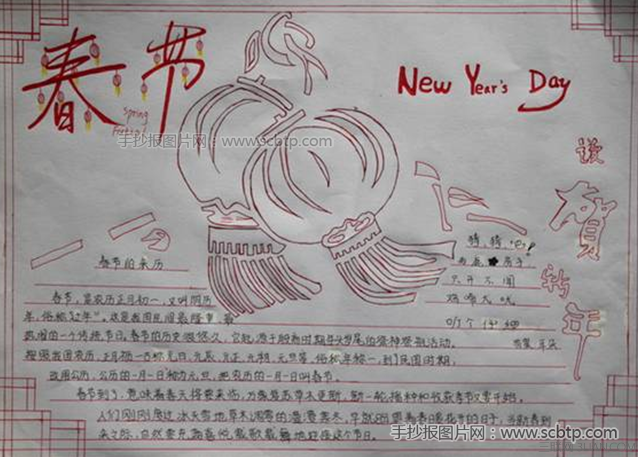 春节
Spring
Festival
New Year's Day
手抄报图片网 www.scbtp.com
贺
新
年
春节的来历
春节,是农历正月初一,又叫阴历
年,俗称"过年"。这是我国民间最隆重、最
热闹的一个传统节日。春节的历史很悠久,它起源于殷商时期年头岁尾的祭神祭祖活动。
按照我国农历,正月初一古称元日、元辰、元正、元朔、元旦等,俗称年初一,到了民国时期,
改用公历,公历的一月一日称为元旦,把农历的一月一日叫春节。
春节到了,意味着春天将要来临,万象复苏草木更新,新一轮播种和收获季节又要开始。
人们刚刚度过冰天雪地草木凋零的漫漫寒冬,早就盼望着春暖花开的日子,当新春到
来之际,自然要充满喜悦载歌载舞地迎接这个节日。
手抄报图片网 www.scbtp.com